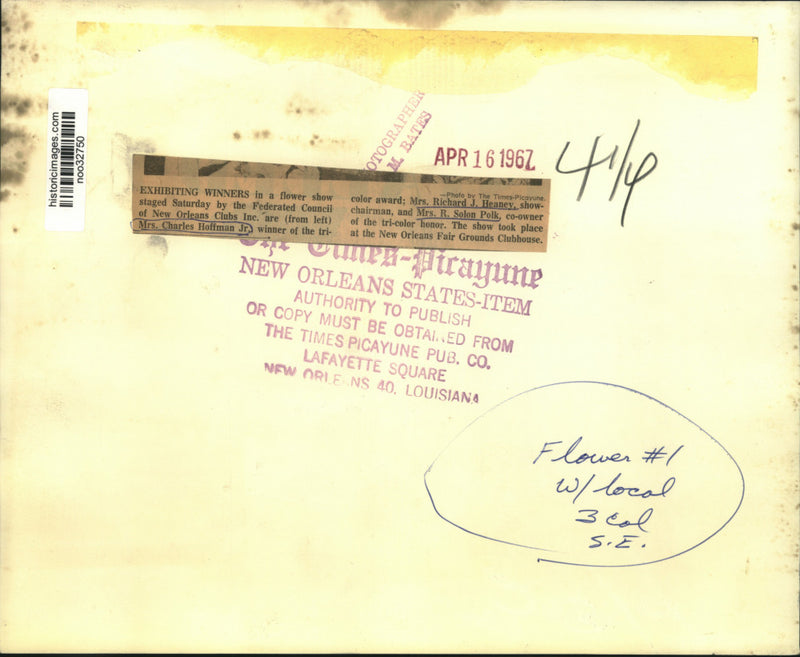 historicimages.com
noo32750
PHOTOGRAPHER
M. BATES
APR 16 1967
4/4
—Photo by The Times-Picayune.
EXHIBITING WINNERS in a flower show
staged Saturday by the Federated Council
of New Orleans Clubs Inc. are (from left)
Mrs. Charles Hoffman Jr., winner of the tri-
color award; Mrs. Richard J. Heaney, show-
chairman, and Mrs. R. Solon Polk, co-owner
of the tri-color honor. The show took place
at the New Orleans Fair Grounds Clubhouse.
The Times-Picayune
NEW ORLEANS STATES-ITEM
AUTHORITY TO PUBLISH
OR COPY MUST BE OBTAINED FROM
THE TIMES PICAYUNE PUB. CO.
LAFAYETTE SQUARE
NEW ORLEANS 40, LOUISIANA
Flower #1
W/ local
3 col
S.E.